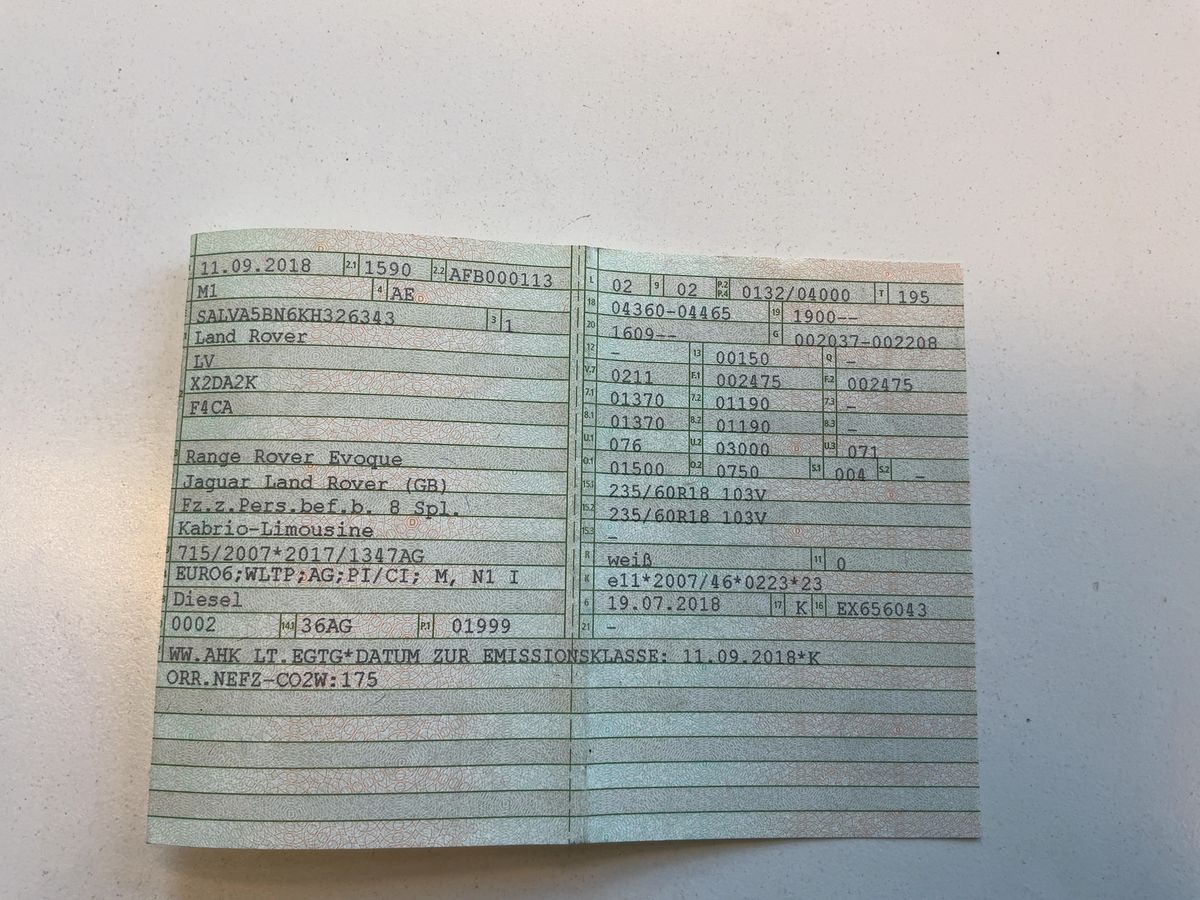 11.09.2018 2.1 1590 2.2 AFB000113
M1 4 AE
SALVA5BN6KH326343 3 1
Land Rover
LV
X2DA2K
F4CA
Range Rover Evoque
Jaguar Land Rover (GB)
Fz.z.Pers.bef.b. 8 Spl.
Kabrio-Limousine
715/2007*2017/1347AG
EURO6;WLTP;AG;PI/CI; M, N1 I
Diesel
0002 14.1 36AG P.1 01999
L 02 9 02 P.2 P.4 0132/04000 T 195
18 04360-04465 19 1900--
20 1609-- G 002037-002208
12 - 13 00150 Q -
V.7 0211 F.1 002475 F.2 002475
7.1 01370 7.2 01190 7.3 -
8.1 01370 8.2 01190 8.3 -
U.1 076 U.2 03000 U.3 071
O.1 01500 O.2 0750 S.1 004 S.2 -
15.1 235/60R18 103V
15.2 235/60R18 103V
15.3 -
R weiß 11 0
K e11*2007/46*0223*23
6 19.07.2018 17 K 16 EX656043
21 -
WW.AHK LT.EGTG*DATUM ZUR EMISSIONSKLASSE: 11.09.2018*K
ORR.NEFZ-CO2W:175